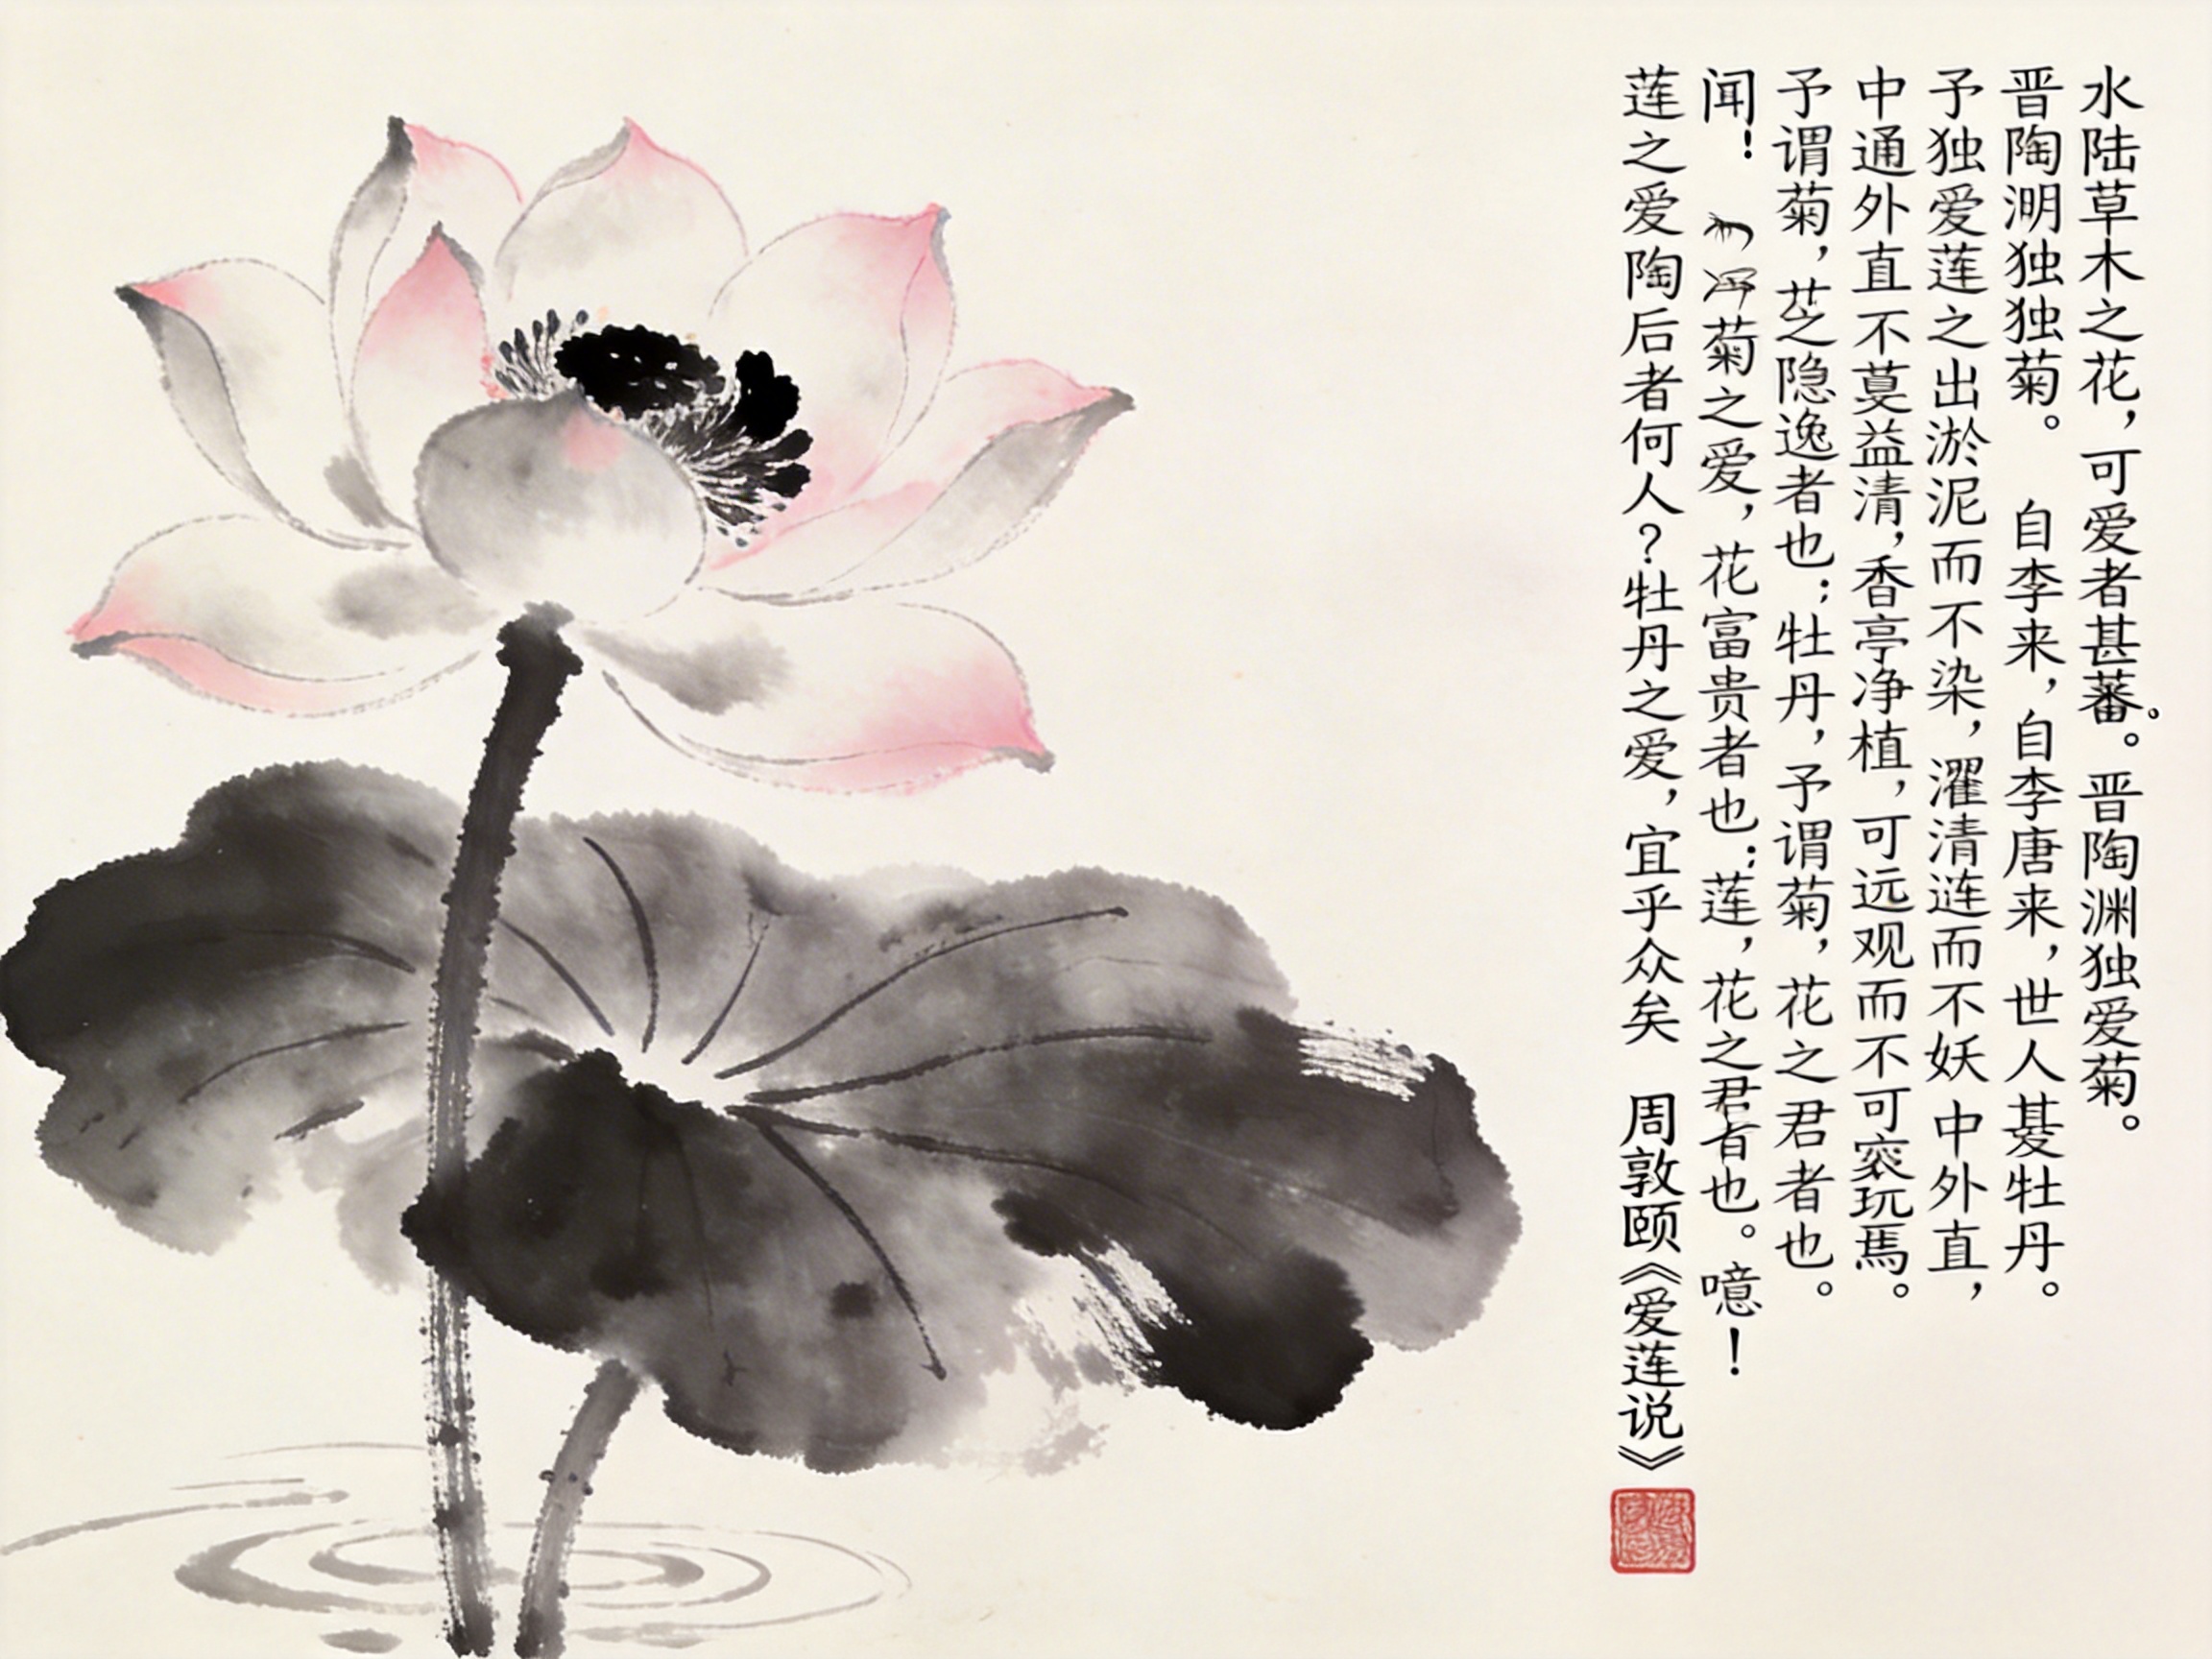 水陆草木之花，可爱者甚蕃。晋陶渊独爱菊。
晋陶渊独独菊。 自李来，自李唐来，世人甚牡丹。
予独爱莲之出淤泥而不染，濯清涟而不妖 中外直，
中通外直不蔓益清，香亭净植，可远观而不可亵玩焉。
予谓菊，花之隐逸者也；牡丹，予谓菊，花之君者也。
闻！ 菊之爱，花富贵者也；莲，花之君者也。噫！
莲之爱陶后者何人？牡丹之爱，宜乎众矣 周敦颐《爱莲说》